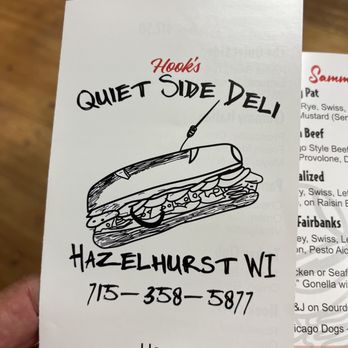 Hook's
QUIET SIDE DELI
HAZELHURST WI
715-358-5877
Samm
Pat
Rye, Swiss,
Mustard (Ser
Beef
go Style Beef
Provolone, D
alized
Swiss, Let
, on Raisin B
Fairbanks
ey, Swiss, Le
on, Pesto Aio
icken or Seaf
" Gonella wi
&J on Sourd
icago Dogs -